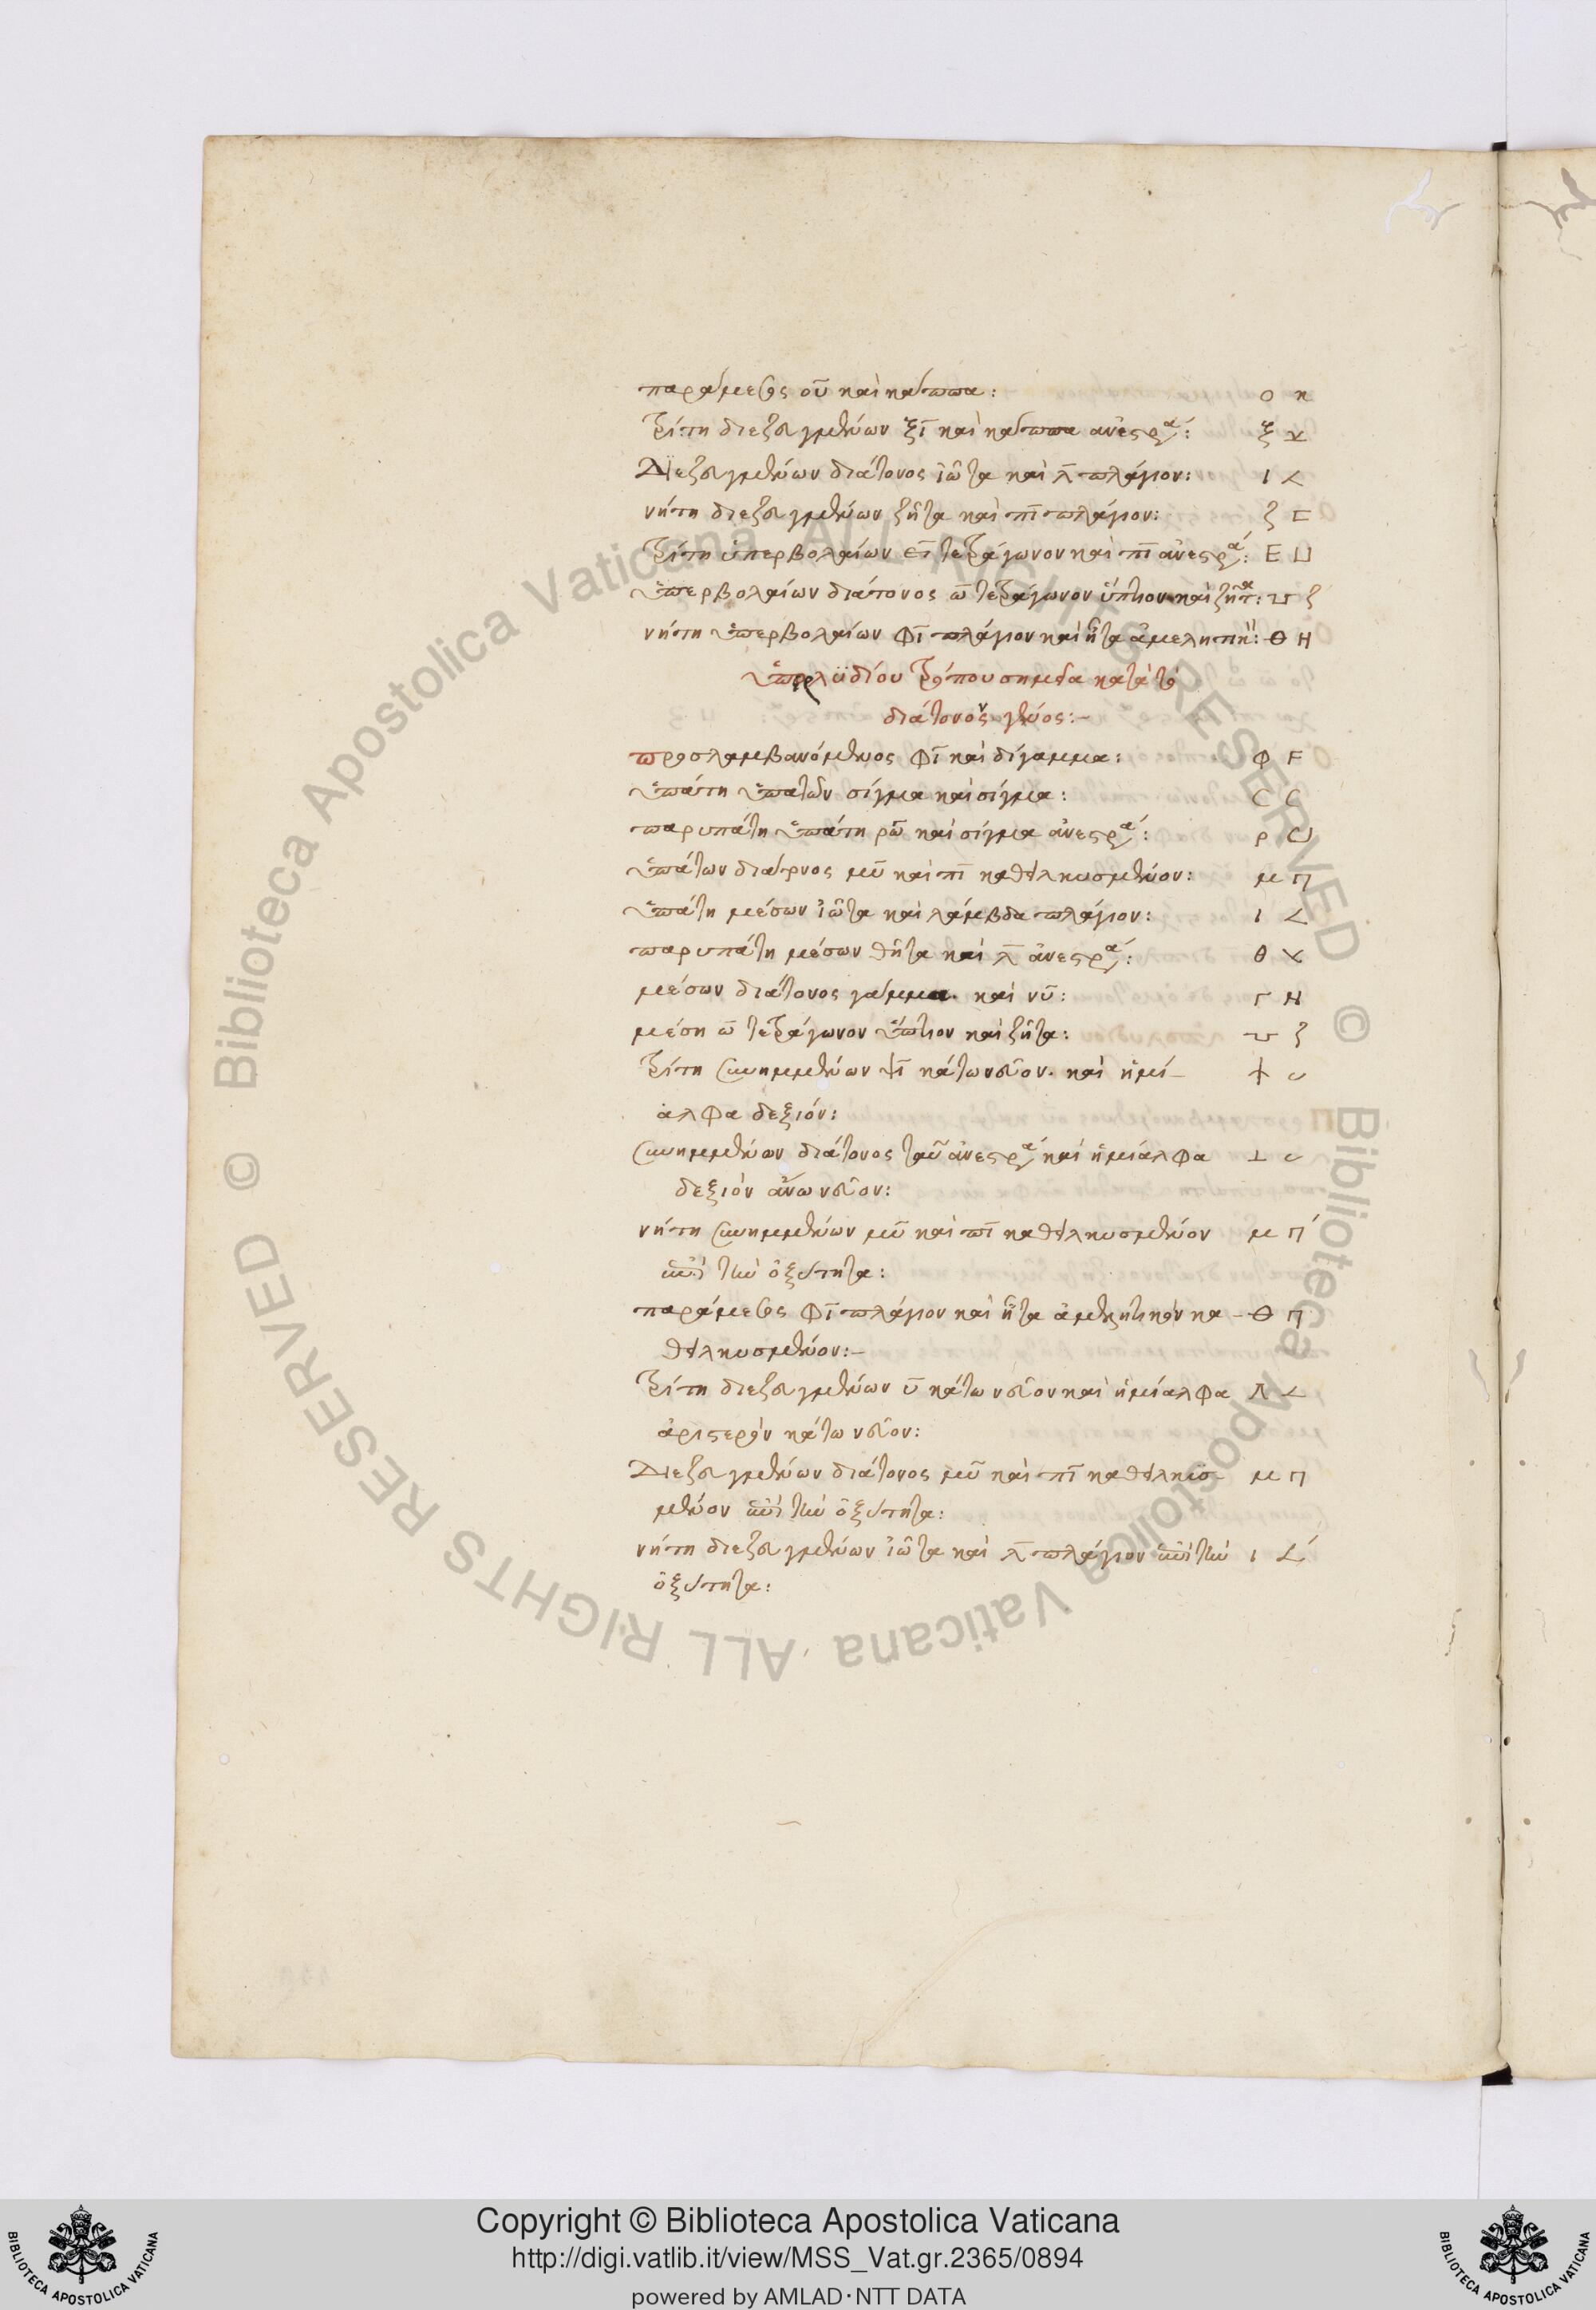 παράμεσος οὖ καὶ κάππα: Ο κ
Τρίτη διεζευγμένων ξῖ καὶ κάππα ἀνεστρα΄: ξ
Διεζευγμένων διάτονος ἰῶτα καὶ λ̅ πλάγιον: ι <
νήτη διεζευγμένων ζῆτα καὶ πῖ πλάγιον: ζ ⊏
Τρίτη ὑπερβολαίων ε̅ῖ τετράγωνον καὶ πῖ ἀνεστρα΄: Ε ⊔
ὑπερβολαίων διάτονος ω̅ τετράγωνον ὕπτιον καὶ ζῆτα: ζ
νήτη ὑπερβολαίων φῖ πλάγιον καὶ ἦτα ἀμελητικ: Θ Η
ὑπερλυδίου τρόπου σημεῖα κατὰ τὸ
διάτονον γένος:–
προσλαμβανόμενος φῖ καὶ δίγαμμα: Φ F
ὑπάτη ὑπατῶν σίγμα καὶ σίγμα: C C
παρυπάτη ὑπάτη ρ̅ῶ καὶ σίγμα ἀνεστρα΄: ρ
ὑπάτων διάτονος μῦ καὶ πῖ καθειλκυσμένον: μ Π
ὑπάτη μέσων ἰῶτα καὶ λάμβδα πλάγιον: ι <
παρυπάτη μέσων θῆτα καὶ λ̅ ἀνεστρα΄: θ
μέσων διάτονος γάμμα. καὶ νῦ: Γ Ν
μέση ω̅ τετράγωνον ὕπτιον καὶ ζῆτα: ζ
Τρίτη συνημμένων ψῖ κάτω νεῦον. καὶ ἡμί–
αλφα δεξιόν:
συνημμένων διάτονος ταῦ ἀνεστρα΄ καὶ ἡμίαλφα ⊥
δεξιὸν ἄνω νεῦον:
νήτη συνημμένων μῦ καὶ πῖ καθειλκυσμένον μ Π΄
ἐπὶ τὴν ὀξύτητα:
παράμεσος φῖ πλάγιον καὶ ἦτα ἀμελητικὸν κα– Θ Π
θειλκυσμένον:–
Τρίτη διεζευγμένων υ̅ κάτω νεῦον καὶ ἡμίαλφα
ἀριστερὸν κάτω νεῦον:
Διεζευγμένων διάτονος μῦ καὶ πῖ καθειλκυσ– μ Π
μένον ἐπὶ τὴν ὀξύτητα:
νήτη διεζευγμένων ἰῶτα καὶ λ̅ πλάγιον ἐπὶ τὴν ι <΄
ὀξύτητα:
© Biblioteca Apostolica Vaticana ALL RIGHTS RESERVED © Biblioteca Apostolica Vaticana ALL RIGHTS RESERVED
Copyright © Biblioteca Apostolica Vaticana
http://digi.vatlib.it/view/MSS_Vat.gr.2365/0894
powered by AMLAD·NTT DATA
BIBLIOTECA APOSTOLICA VATICANA
BIBLIOTECA APOSTOLICA VATICANA